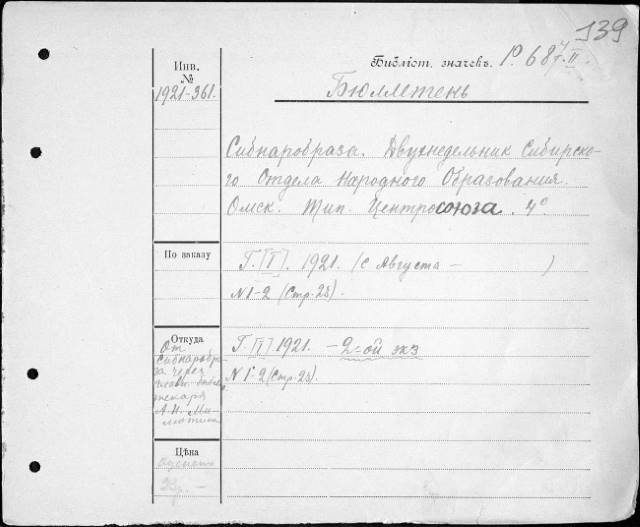 139
Инв. №
1921-361.
Библіот. значекъ. Р. 687. II.
Бюллетень
Сибнаробраза. Двухнедельник Сибирско-
го Отдела Народного Образования.
Омск. Тип. Центросоюза. 4°
По заказу
Г. [I]. 1921. (с Августа — )
N 1-2 (Стр. 28).
Откуда
От
Сибнаробра-
за через
А. И. Ми-
лютина
Г. [I] 1921. - 2-ой экз
N 1-2 (Стр. 28).
Цѣна